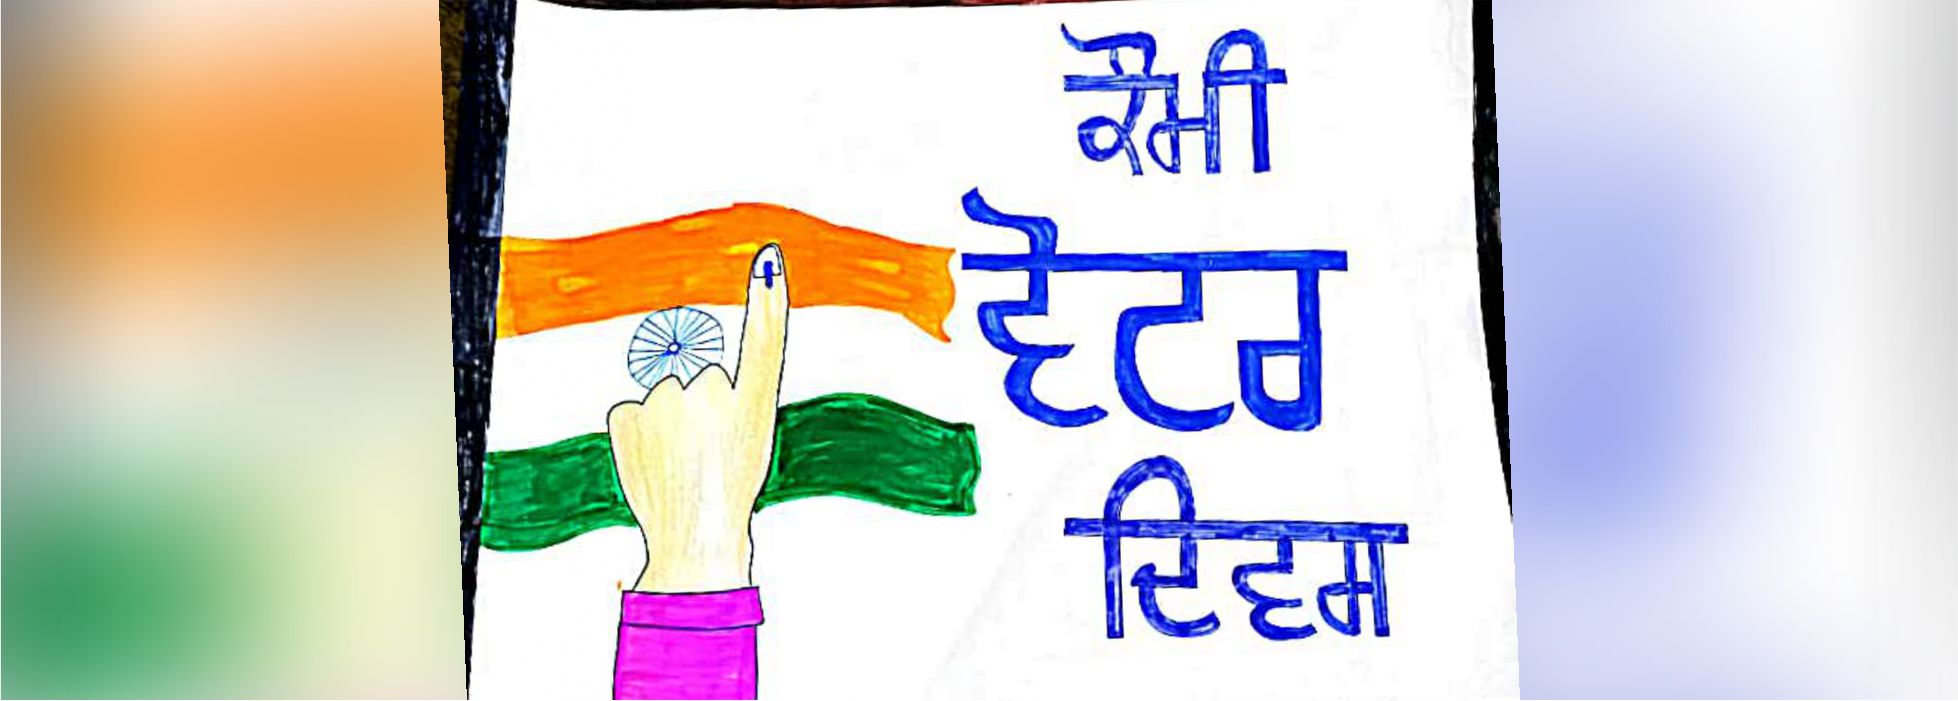 ਕੌਮੀ
ਵੋਟਰ
ਦਿਵਸ